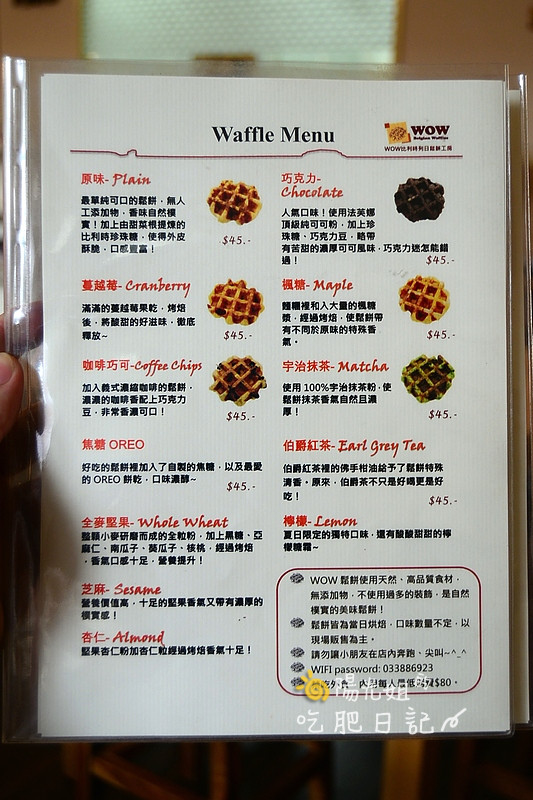 Waffle Menu
WOW
Belgian Waffles
WOW比利時列日鬆餅工房
原味- Plain
最單純可口的鬆餅，無人
工添加物，香味自然樸
實！加上由甜菜根提煉的
比利時珍珠糖，使得外皮
酥脆，口感豐富！
$45.-
蔓越莓- Cranberry
滿滿的蔓越莓果乾，烤焙
後，將酸甜的好滋味，徹底
釋放~
$45.-
咖啡巧可-Coffee Chips
加入義式濃縮咖啡的鬆餅，
濃濃的咖啡香配上巧克力
豆，非常香濃可口！
$45.-
焦糖 OREO
好吃的鬆餅裡加入了自製的焦糖，以及最愛
的 OREO 餅乾，口味濃醇~
$45.-
全麥堅果- Whole Wheat
整顆小麥研磨而成的全粒粉，加上黑糖、亞
麻仁、南瓜子、葵瓜子、核桃，經過烤焙
，香氣口感十足，營養提升！
芝麻- Sesame
營養價值高，十足的堅果香氣又帶有濃厚的
樸實感！
.-
杏仁- Almond
堅果杏仁粉加杏仁粒經過烤焙香氣十足！
巧克力-
Chocolate
人氣口味！使用法芙娜
頂級純可可粉，加上珍
珠糖、巧克力豆，略帶
有苦甜的濃厚可可風味，巧克力迷怎能錯
過！
$45.-
楓糖- Maple
麵糰裡和入大量的楓糖
漿，經過烤焙，使鬆餅帶
有不同於原味的特殊香
氣。
$45.-
宇治抹茶- Matcha
使用 100%宇治抹茶粉，使
鬆餅抹茶香氣自然且濃
厚！
$45.-
伯爵紅茶- Earl Grey Tea
伯爵紅茶裡的佛手柑油給予了鬆餅特殊
清香。原來，伯爵茶不只是好喝更是好
吃！
$45.-
檸檬- Lemon
夏日限定的獨特口味，還有酸酸甜甜的檸
檬糖霜~
WOW 鬆餅使用天然、高品質食材，
無添加物，不使用過多的裝飾，是自然
樸實的美味鬆餅！
鬆餅皆為當日烘焙，口味數量不定，以
現場販售為主。
請勿讓小朋友在店內奔跑、尖叫~^_^
WIFI password: 033886923
內用每人最低消費$80。
陽光姐
吃肥日記